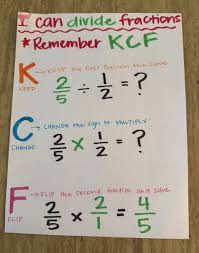 I can divide fractions
* Remember KCF
K → KEEP the first fraction the same
KEEP
2/5 ÷ 1/2 = ?
C → CHANGE the sign to MULTIPLY
CHANGE
2/5 × 1/2 = ?
F → FLIP the second fraction and solve
FLIP
2/5 × 2/1 = 4/5